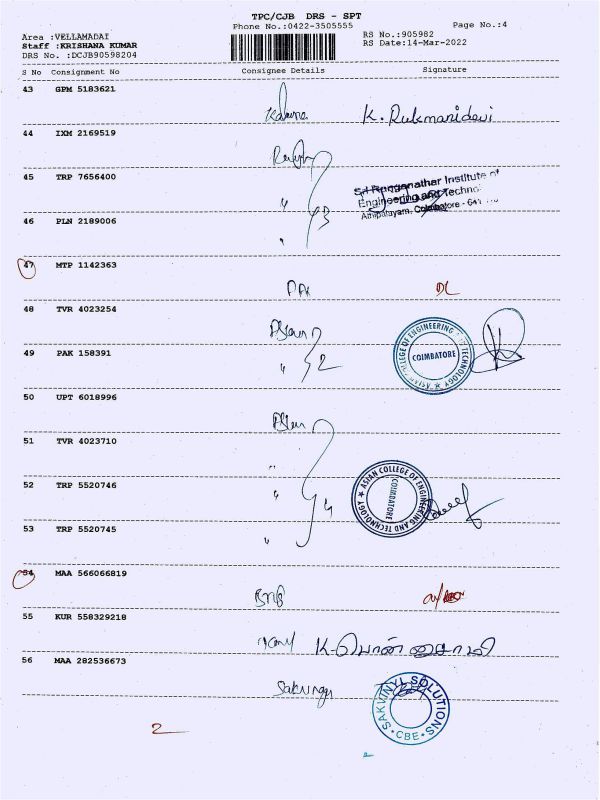 TPC/CJB DRS - SPT
Phone No.:0422-3505555
Page No.:4
Area :VELLAMADAI
Staff :KRISHANA KUMAR
DRS No. :DCJB90598204
RS No.:905982
RS Date:14-Mar-2022
S No Consignment No Consignee Details Signature
43 GPM 5183621
K. Rukmanidevi
44 IXM 2169519
45 TRP 7656400
Sri Ranganathar Institute of
Engineering and Techno
Athipalayam, Coimbatore - 641
46 PLN 2189006
3
47 MTP 1142363
DL
48 TVR 4023254
ASIAN COLLEGE OF ENGINEERING AND TECHNOLOGY
COIMBATORE
49 PAK 158391
2
50 UPT 6018996
51 TVR 4023710
52 TRP 5520746
ASIAN COLLEGE OF ENGINEERING AND TECHNOLOGY
COIMBATORE
4
53 TRP 5520745
54 MAA 566066819
55 KUR 558329218
56 MAA 282536673
SAKVINYL SOLUTIONS
CBE
2